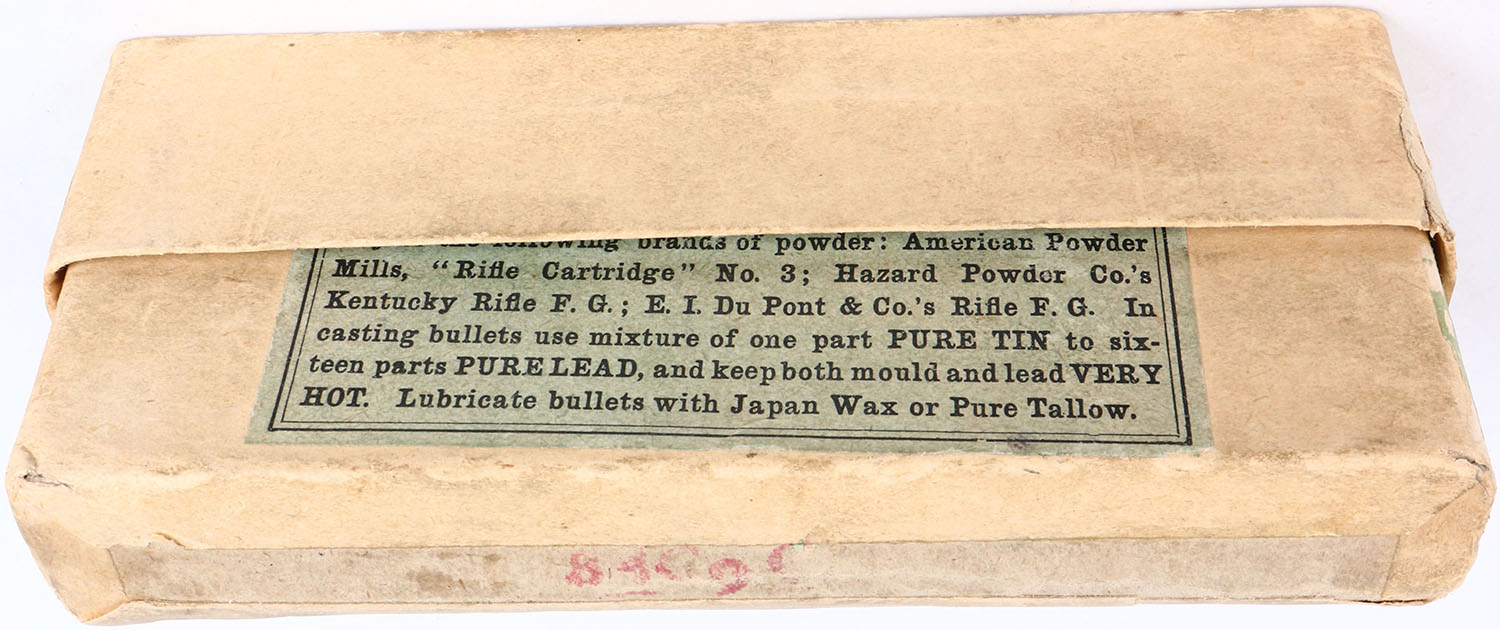 the following brands of powder: American Powder
Mills, "Rifle Cartridge" No. 3; Hazard Powder Co.'s
Kentucky Rifle F. G.; E. I. Du Pont & Co.'s Rifle F. G. In
casting bullets use mixture of one part PURE TIN to six-
teen parts PURE LEAD, and keep both mould and lead VERY
HOT. Lubricate bullets with Japan Wax or Pure Tallow.